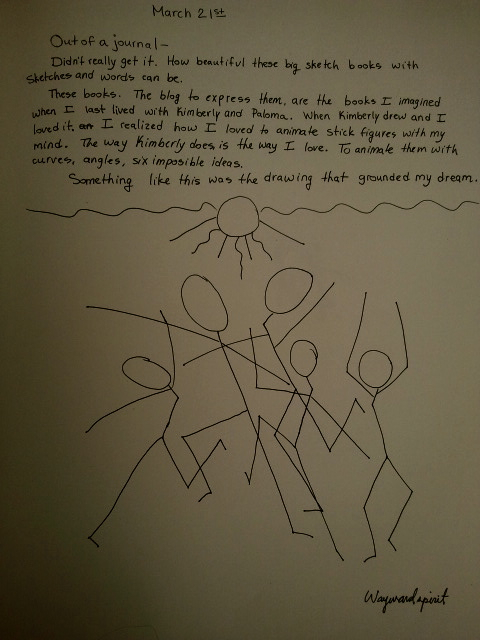 March 21st
Out of a journal—
Didn't really get it. How beautiful these big sketch books with
sketches and words can be.
These books. The blog to express them, are the books I imagined
when I last lived with Kimberly and Paloma. When Kimberly drew and I
loved it, I realized how I loved to animate stick figures with my
mind. The way Kimberly does is the way I love. To animate them with
curves, angles, six imposible ideas.
Something like this was the drawing that grounded my dream.
Waywardspirit